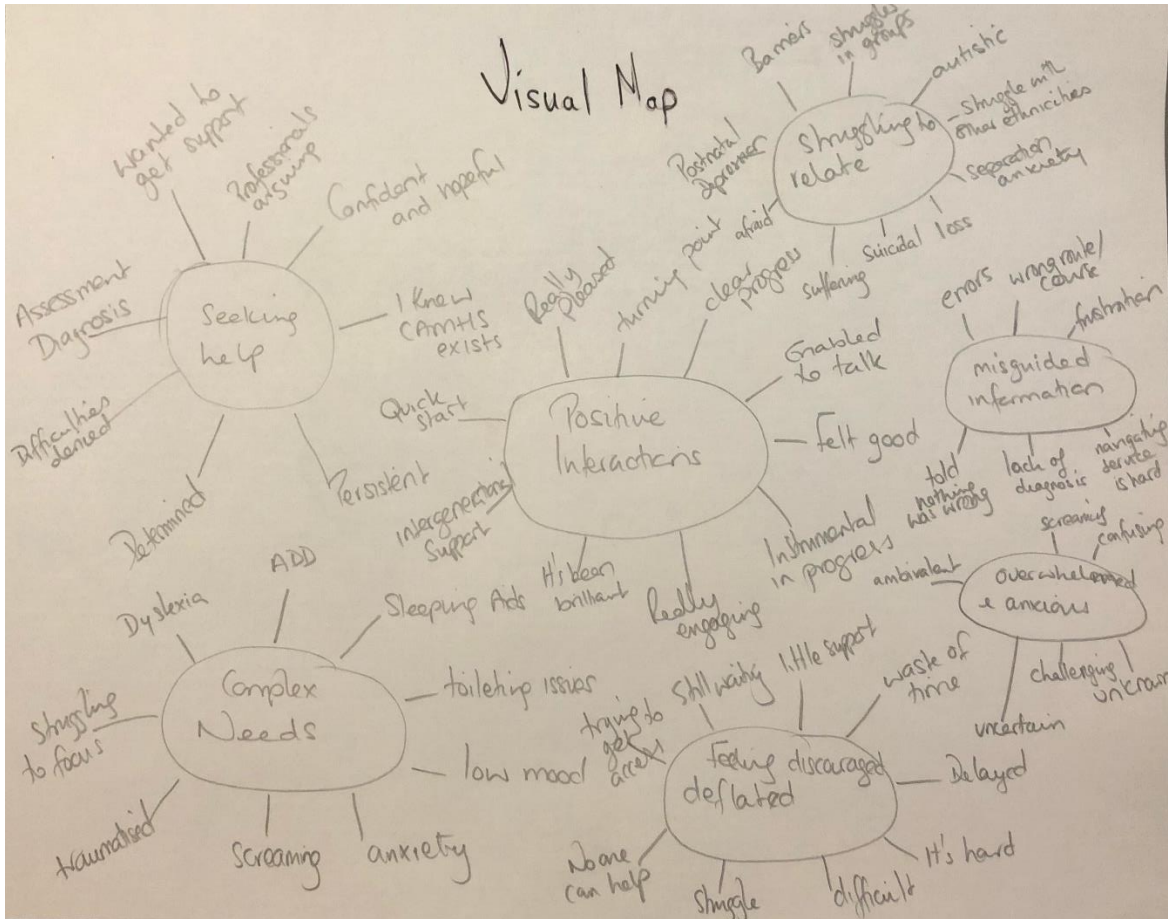 Visual Map
Seeking
help
Wanted to
get support
Professionals
arguing
Confident
and hopeful
I Knew
CAMHS
exists
Persistent
Determined
Difficulties
denied
Assessment
Diagnosis
struggling to
relate
Barriers
struggles
in groups
autistic
struggle with
other ethnicities
separation
anxiety
loss
suicidal
suffering
afraid
Postnatal
Positive
Interactions
Really
pleased
turning point
clear
progress
Enabled
to talk
Felt good
Instrumental
in progress
Really
engaging
It's been
brilliant
Intergenerational
Support
Quick
start
misguided
information
errors
wrong route/
course
frustration
navigating
service
is hard
lack of
diagnosis
told
nothing
was wrong
overwhelmed
& anxious
ambivalent
screaming
confusing
unknown
challenging
uncertain
Complex
Needs
Dyslexia
ADD
Sleeping Aids
toileting issues
low mood
anxiety
Screaming
traumatised
Struggling
to focus
Feeling discouraged
deflated
trying to
get
access
Still waiting
little support
waste of
time
Delayed
It's hard
difficult
struggle
No one
can help